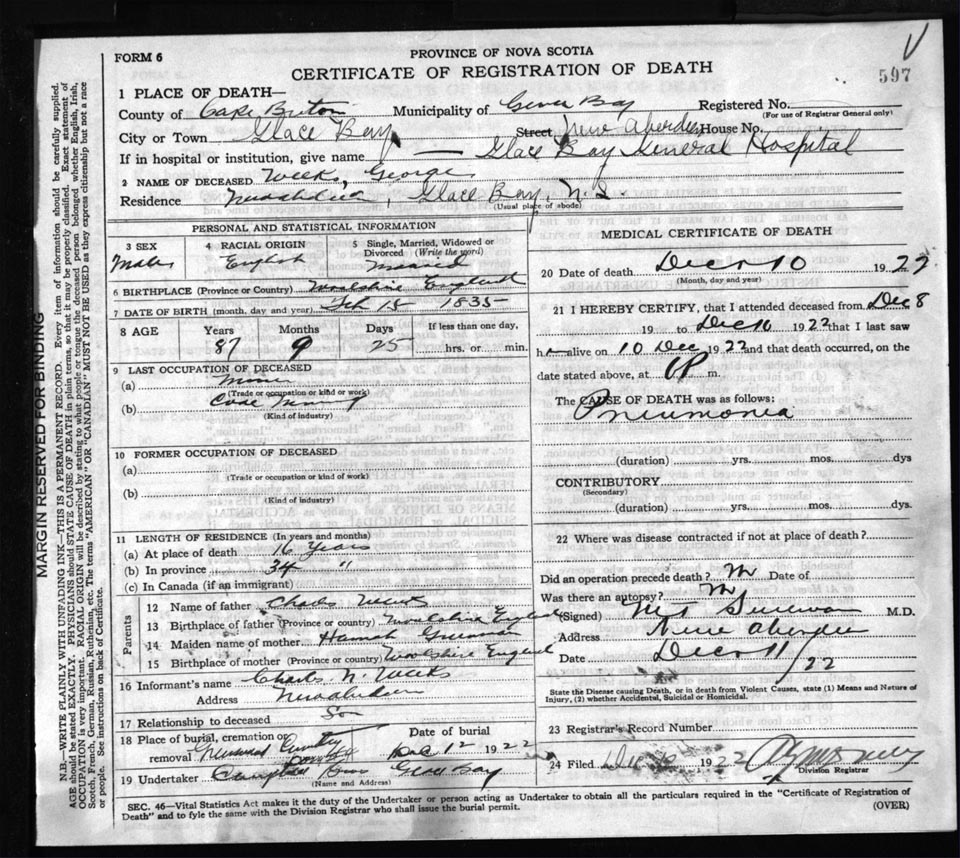 FORM 6
PROVINCE OF NOVA SCOTIA
CERTIFICATE OF REGISTRATION OF DEATH
597
1 PLACE OF DEATH—
County of Cape Breton Municipality of Glace Bay Registered No.
(For use of Registrar General only)
City or Town Glace Bay Street New Aberdeen House No.
If in hospital or institution, give name — Glace Bay General Hospital
2 NAME OF DECEASED Weeks, George
Residence Newaberdeen, Glace Bay, N.S
(Usual place of abode)
PERSONAL AND STATISTICAL INFORMATION
3 SEX
Male
4 RACIAL ORIGIN
English
5 Single, Married, Widowed or Divorced (Write the word)
Married
6 BIRTHPLACE (Province or Country) England
7 DATE OF BIRTH (month, day and year) Feb 15 1835
8 AGE Years Months Days If less than one day,
87 9 25 hrs. or min.
9 LAST OCCUPATION OF DECEASED
(a) Miner
(Trade or occupation or kind or work)
(b) Coal Mining
(Kind of industry)
10 FORMER OCCUPATION OF DECEASED
(a)
(Trade or occupation or kind of work)
(b)
(Kind of industry)
11 LENGTH OF RESIDENCE (In years and months)
(a) At place of death 16 Years
(b) In province 34 "
(c) In Canada (if an immigrant)
Parents
12 Name of father Charles Weeks
13 Birthplace of father (Province or country) England
14 Maiden name of mother Hannah
15 Birthplace of mother (Province or country) England
16 Informant's name Charles N. Weeks
Address Newaberdeen
17 Relationship to deceased Son
18 Place of burial, cremation or removal Date of burial
Greenwood Cemetery Dec 12 1922
19 Undertaker Campbell Bros Glace Bay
(Name and Address)
MEDICAL CERTIFICATE OF DEATH
20 Date of death Dec 10 1922
(Month, day and year)
21 I HEREBY CERTIFY, that I attended deceased from Dec 8
19 to Dec 10 1922 that I last saw
h alive on 10 Dec 1922 and that death occurred, on the
date stated above, at P m.
The CAUSE OF DEATH was as follows:
Pneumonia
(duration) yrs. mos. dys
CONTRIBUTORY
(Secondary)
(duration) yrs. mos. dys.
22 Where was disease contracted if not at place of death?
Did an operation precede death? No Date of
Was there an autopsy? No
(Signed) M.D.
Address New Aberdeen
Date Dec 11/22
State the Disease causing Death, or in death from Violent Causes, state (1) Means and Nature of Injury, (2) whether Accidental, Suicidal or Homicidal.
23 Registrar's Record Number
24 Filed 1922
Division Registrar
SEC. 46—Vital Statistics Act makes it the duty of the Undertaker or person acting as Undertaker to obtain all the particulars required in the "Certificate of Registration of
Death" and to fyle the same with the Division Registrar who shall issue the burial permit.
(OVER)
MARGIN RESERVED FOR BINDING
N.B.—WRITE PLAINLY WITH UNFADING INK—THIS IS A PERMANENT RECORD. Every item of information should be carefully supplied.
AGE should be stated EXACTLY. PHYSICIANS should STATE CAUSE OF DEATH in plain terms, so that it may be properly classified. Exact statement of
OCCUPATION is very important. RACIAL ORIGIN will be described by stating to what people or tongue the deceased person belonged whether English, Irish,
Scotch, French, German, Russian, Ruthenian, etc. The terms "AMERICAN" OR "CANADIAN" MUST NOT BE USED as they express citizenship but not a race
or people. See instructions on back of Certificate.